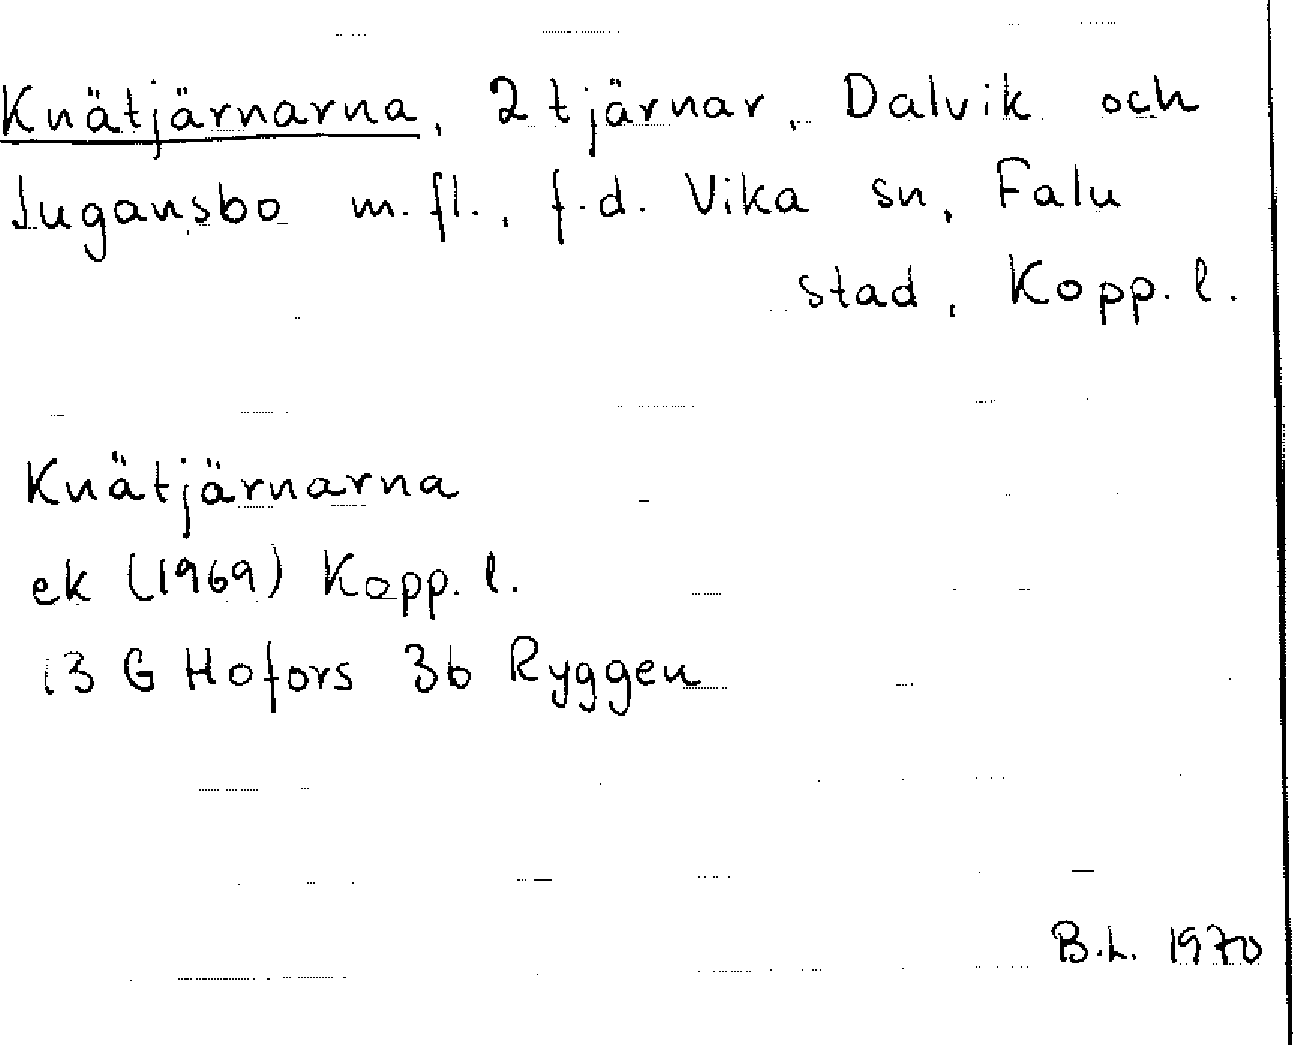 Knätjärnarna, 2 tjärnar, Dalvik och
Jugansbo m.fl., f.d. Vika sn, Falu
stad, Kopp. l.
Knätjärnarna
ek (1969) Kopp. l.
13 G Hofors 3b Ryggen
B.L. 1970